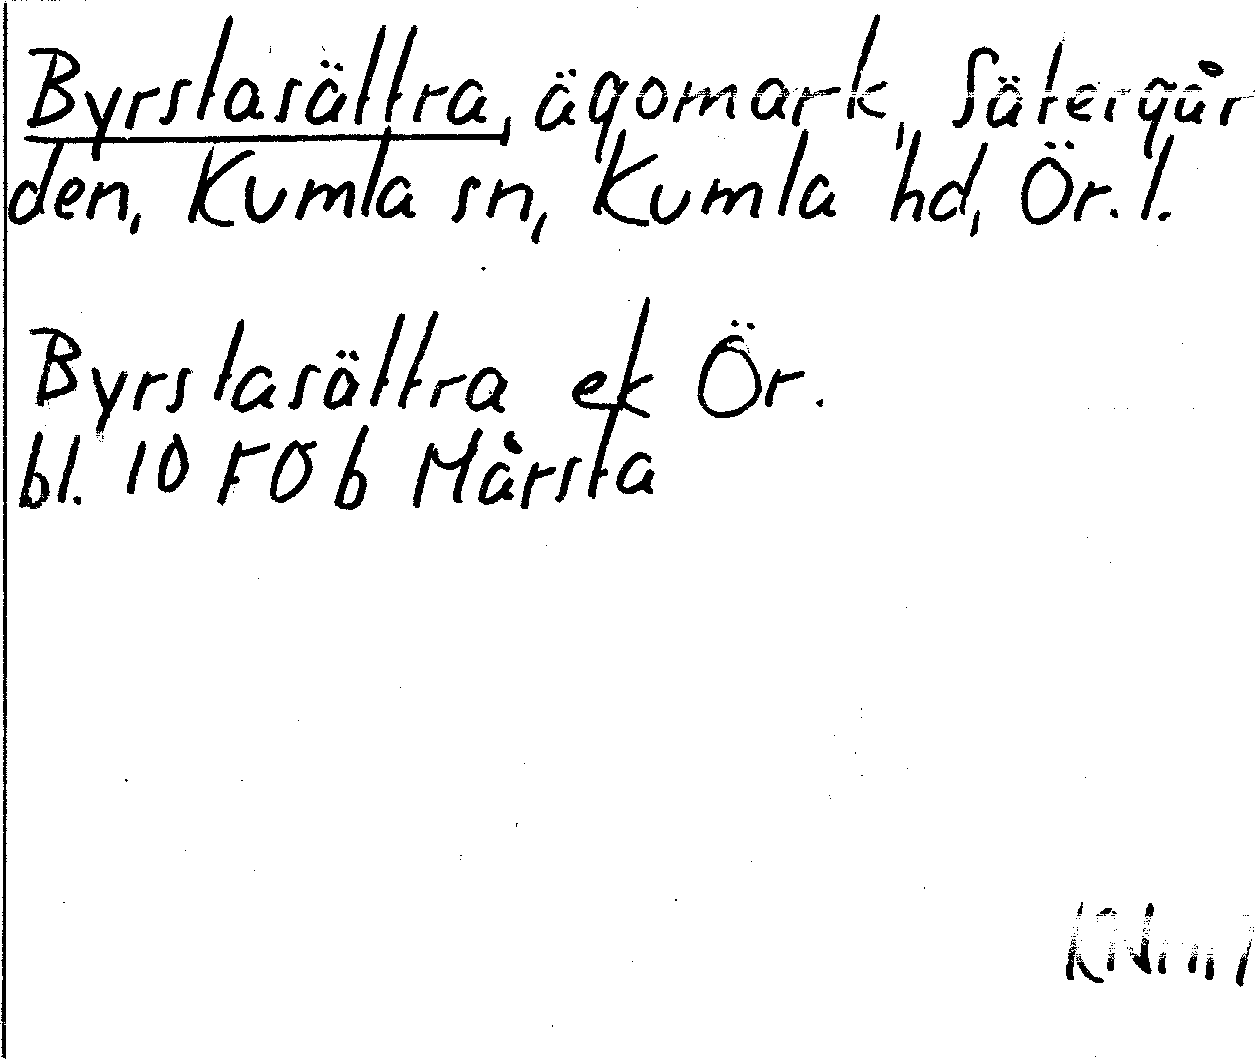 Byrstasättra, ägomark, Sätergår
den, Kumla sn, Kumla hd, Ör. l.
Byrstasättra ek Ör.
bl. 10 F 0 b Mårsta